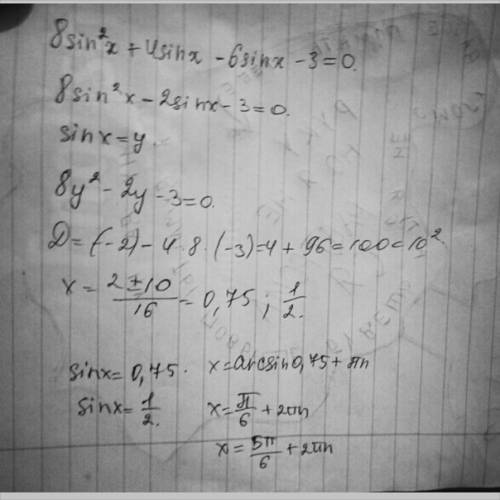 8sin²x + 4sinx - 6sinx - 3 = 0.
8sin²x - 2sinx - 3 = 0.
sinx = y.
8y² - 2y - 3 = 0.
D = (-2) - 4·8·(-3) = 4 + 96 = 100 = 10².
x = (2 ± 10)/16 = 0,75 ; 1/2.
sinx = 0,75. x = arcsin0,75 + πn
sinx = 1/2. x = π/6 + 2πn
x = 5π/6 + 2πn